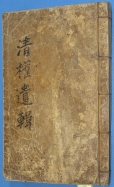 清權遺輯